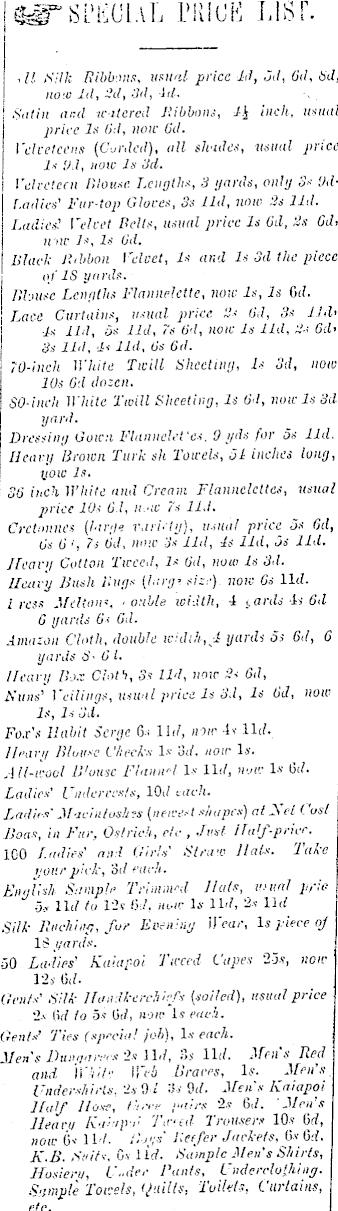 SPECIAL PRICE LIST.
All Silk Ribbons, usual price 4d, 5d, 6d, 8d,
now 1d, 2d, 3d, 4d.
Satin and watered Ribbons, 4½ inch, usual
price 1s 6d, now 6d.
Velveteens (Corded), all shades, usual price
1s 9d, now 1s 3d.
Velveteen Blouse Lengths, 3 yards, only 3s 9d.
Ladies' Fur-top Gloves, 3s 11d, now 2s 11d.
Ladies' Velvet Belts, usual price 1s 6d, 2s 6d,
now 1s, 1s 6d.
Black Ribbon Velvet, 1s and 1s 3d the piece
of 18 yards.
Blouse Lengths Flannelette, now 1s, 1s 6d.
Lace Curtains, usual price 2s 6d, 3s 11d,
4s 11d, 5s 11d, 7s 6d, now 1s 11d, 2s 6d,
3s 11d, 4s 11d, 6s 6d.
70-inch White Twill Sheeting, 1s 3d, now
10s 6d dozen.
80-inch White Twill Sheeting, 1s 6d, now 1s 3d
yard.
Dressing Gown Flannelettes, 9 yds for 5s 11d.
Heavy Brown Turk sh Towels, 54 inches long,
yow 1s.
36 inch White and Cream Flannelettes, usual
price 10s 6d, now 7s 11d.
Cretonnes (large variety), usual price 5s 6d,
6s 6d, 7s 6d, now 3s 11d, 4s 11d, 5s 11d.
Heavy Cotton Tweed, 1s 6d, now 1s 3d.
Heavy Bush Rugs (large size), now 6s 11d.
Dress Meltons, double width, 4 yards 4s 6d
6 yards 6s 6d.
Amazon Cloth, double width, 4 yards 5s 6d, 6
yards 8s 6d.
Heavy Box Cloth, 3s 11d, now 2s 6d,
Nuns' Veilings, usual price 1s 3d, 1s 6d, now
1s, 1s 3d.
Fox's Habit Serge 6s 11d, now 4s 11d.
Heavy Blouse Checks 1s 3d, now 1s.
All-wool Blouse Flannel 1s 11d, now 1s 6d.
Ladies' Undervests, 10d each.
Ladies' Macintoshes (newest shapes) at Net Cost
Boas, in Fur, Ostrich, etc , Just Half-price.
100 Ladies' and Girls' Straw Hats. Take
your pick, 3d each.
English Sample Trimmed Hats, usual price
5s 11d to 12s 6d, now 1s 11d, 2s 11d
Silk Ruching, for Evening Wear, 1s piece of
18 yards.
50 Ladies' Kaiapoi Tweed Capes 25s, now
12s 6d.
Gents' Silk Handkerchiefs (soiled), usual price
2s 6d to 5s 6d, now 1s each.
Gents' Ties (special job), 1s each.
Men's Dungarees 2s 11d, 3s 11d. Men's Red
and White Web Braces, 1s. Men's
Undershirts, 2s 9d 3s 9d. Men's Kaiapoi
Half Hose, three pairs 2s 6d. Men's
Heavy Kaiapoi Tweed Trousers 10s 6d,
now 6s 11d. Boys' Reefer Jackets, 6s 6d.
K.B. Suits, 6s 11d. Sample Men's Shirts,
Hosiery, Under Pants, Underclothing.
Sample Towels, Quilts, Toilets, Curtains,
etc.